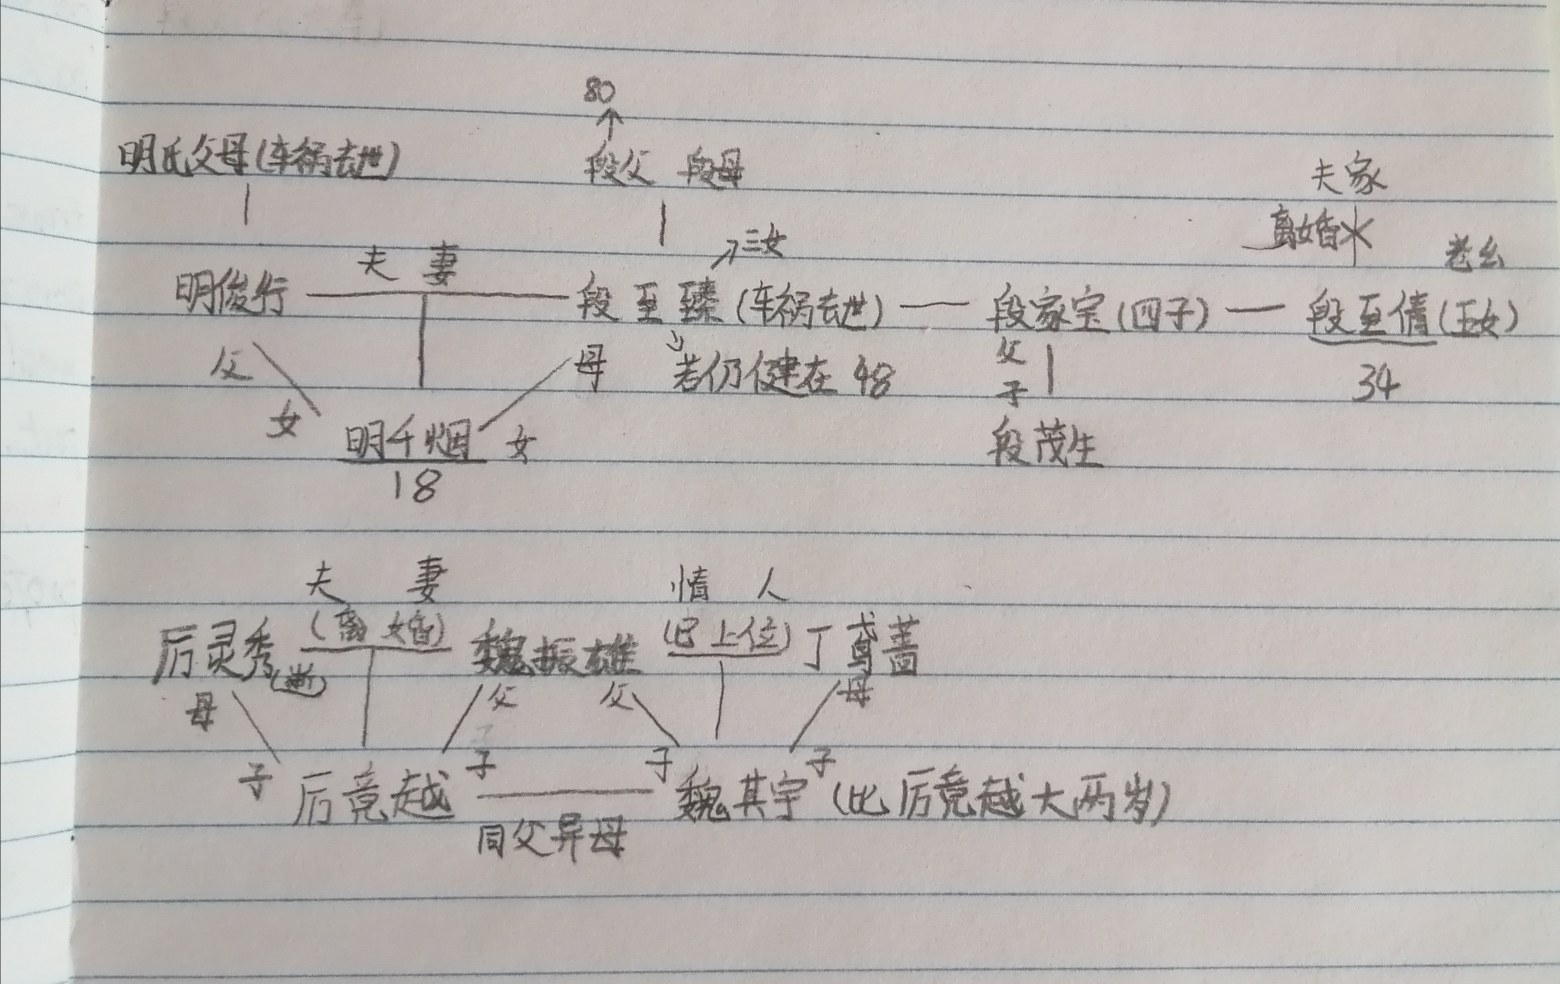 80
明氏父母(车祸去世) 段父 段母
夫家
离婚
夫 妻 三女 老幺
明俊行 段至臻(车祸去世) 段家宝(四子) 段至倩(五女)
父 母 若仍健在 48 父 34
女 子
明千烟 女 段茂生
18
夫 妻 情 人
(离婚) (已上位)
厉灵秀 魏振雄 丁鸢蔷
母 父 父 母
子 子 子 子
厉竟越 魏其宇(比厉竟越大两岁)
同父异母